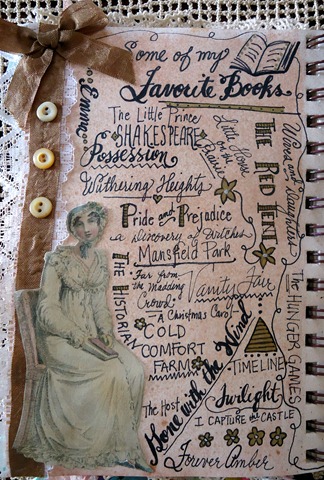 Some of my
Favorite Books
Emma
The Little Prince
SHAKESPEARE
Possession
Little House
on the
Prairie
THE RED TENT
Wives and Daughters
Wuthering Heights
Pride and Prejudice
a Discovery of Witches
Mansfield Park
THE HISTORIAN
Far from
the Madding
Crowd
Vanity Fair
THE HUNGER GAMES
A Christmas Carol
COLD
COMFORT
FARM
Gone with the Wind
TIMELINE
The Host
Twilight
I CAPTURE the CASTLE
Forever Amber